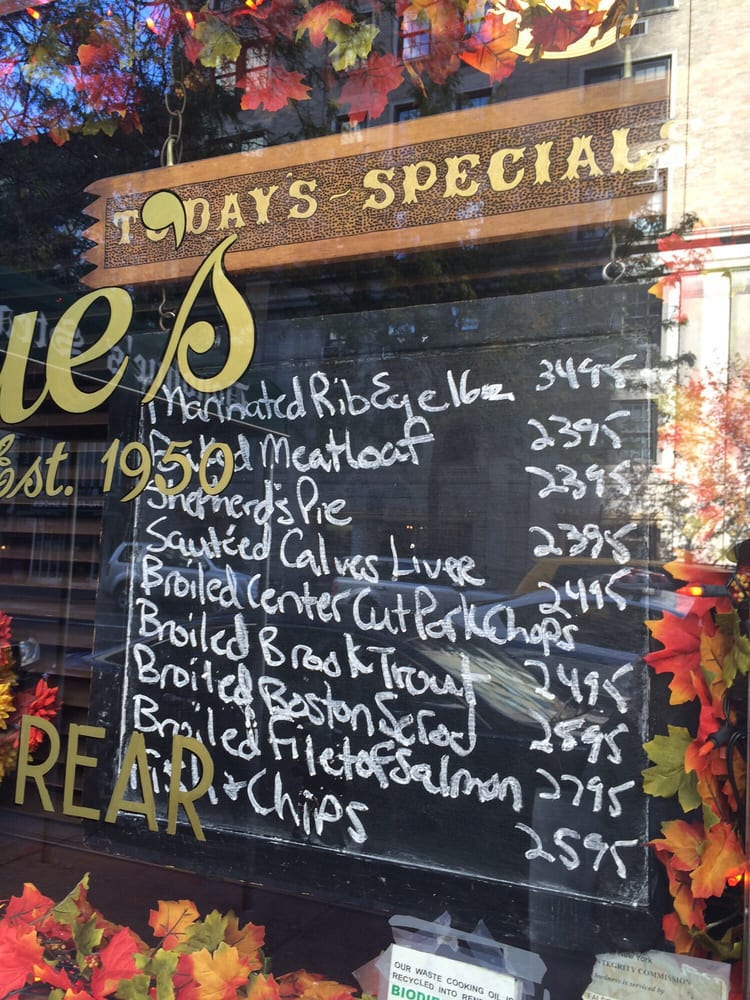 TODAY'S ~ SPECIALS
ue's
Est. 1950
REAR
Marinated Rib Eye 16oz 3495
Baked Meatloaf 2395
Shepherd's Pie 2395
Sautéed Calves Liver 2395
Broiled Center Cut Pork Chops 2495
Broiled Brook Trout 2495
Broiled Boston Scrod 2595
Broiled Filet of Salmon 2795
Fish + Chips 2595
OUR WASTE COOKING OIL IS
RECYCLED INTO
BIODIE
New York
TEGRITY COMMISSION
business is serviced by